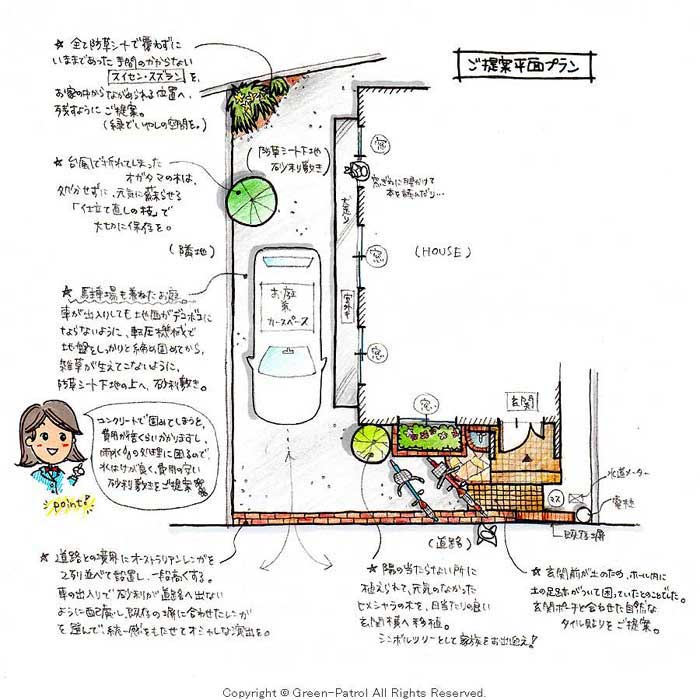 ご提案平面プラン
★ 全て防草シートで覆わずに
いままであった手間のかからない
スイセン・スズランを、
お家の中からながめられる位置へ
残すようにご提案。
(緑でいやしの空間を。)
★ 台風で折れてしまった
オガタマの木は、
処分せずに、元気に蘇らせる
「仕立て直しの技」で
大切に保存を。
(防草シート下地
砂利敷き)
(隣地)
★ 駐車場も兼ねたお庭。
車が出入りしても地面がデコボコに
ならないように、転圧機械で
地盤をしっかりと締め固めてから、
雑草が生えてこないように、
防草シート下地の上へ、砂利敷き。
お庭
兼
カースペース
犬走り
室外キ
窓
窓ぎわに腰かけて
本を読んだり…
窓
窓
(HOUSE)
窓
玄関
コンクリートで固めてしまうと、
費用が倍くらいかかりますし、
雨水の処理に困るので
水はけが良く、費用の安い
砂利敷きをご提案
point!
ガス
水道メーター
電柱
既存塀
(道路)
★ 道路との境界にオーストラリアンレンガを
2列並べて設置し、一段高くする。
車の出入りで砂利が道路へ出ない
ように配慮し、既存の塀に合わせたレンガ
を選んで、統一感をもたせてオシャレな演出を。
★ 陽の当たらない所に
植えられて、元気のなかった
ヒメシャラの木を、日当たりの良い
玄関横へ移植。
シンボルツリーとして家族をお出迎え!
★ 玄関前が土のため、ホール内に
土の足跡がついて困っていたとのことでした。
玄関ポーチと合わせた自然な
タイル貼りをご提案。
Copyright © Green-Patrol All Rights Reserved.